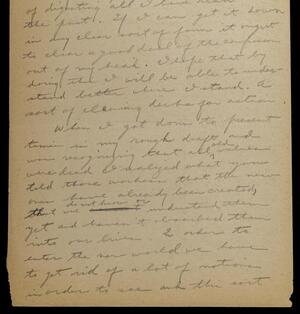 of digesting all I have read
the past. If I can get it down
in any clear sort of form it ought
to clear a good deal of the confusion
out of my head. I hope that by
doing this I will be able to under-
stand better where I stand. A
sort of clearing decks for action.
When I got down to present
times in my rough draft, and
was recognizing that all old values
were dead I realized what you've
told those women that the new
ones have already been created,
that we don't understand them
yet and haven't absorbed them
into our lives. In order to
enter the new world we have
to get rid of a lot of notions
in order to see and the sort